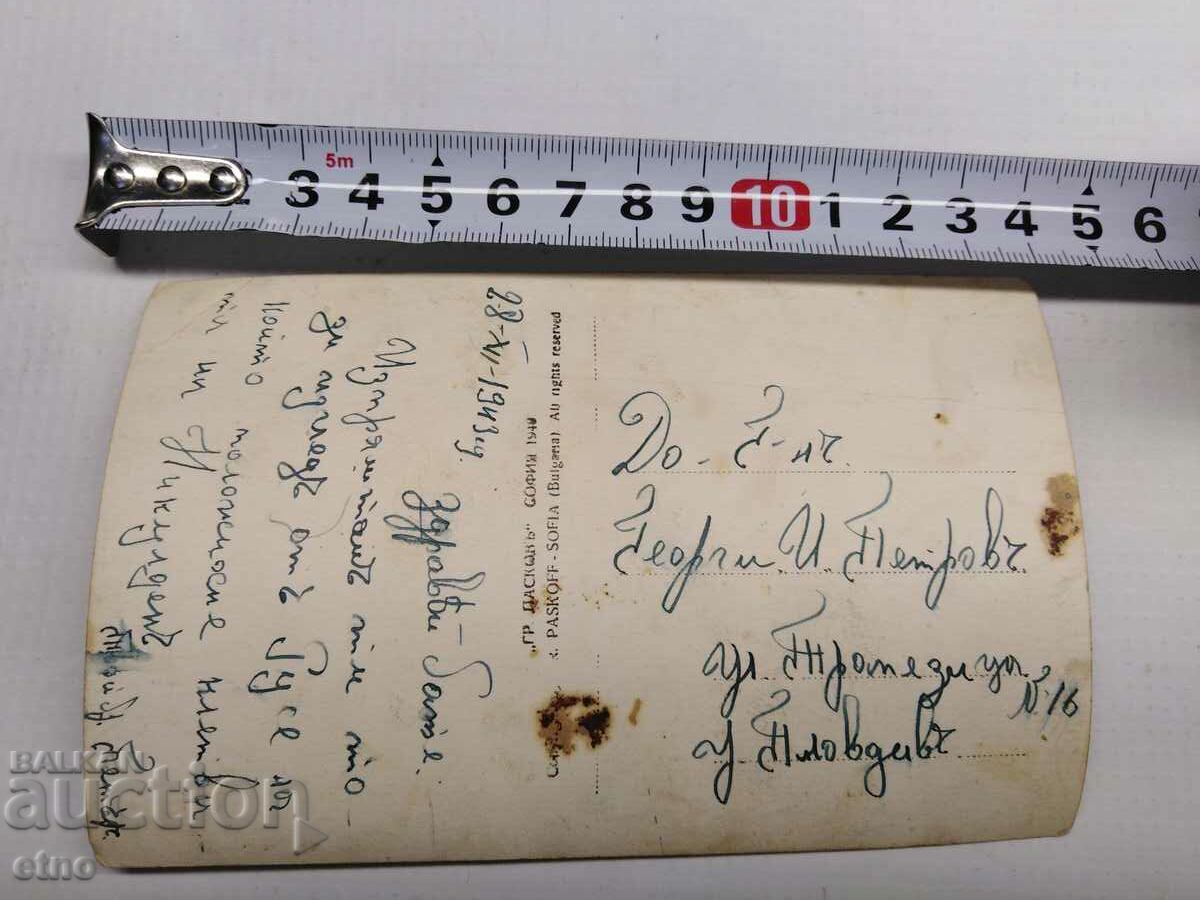 5m
2 3 4 5 6 7 8 9 10 1 2 3 4 5 6
28-XI-1943 г.
Здравей Бате.
Изпращамъ ти то-
зи изгледъ отъ Русе на
който положихме клетви
ни Никулденъ
„ГР. ПАСКОВЪ" СОФИЯ 1940
PASKOFF-SOFIA (Bulgaria) All rights reserved
До Г-нъ.
Георги И. Петровъ
ул. Трапезица
№ 16
Пловдивъ
BALKAN
auction
etno